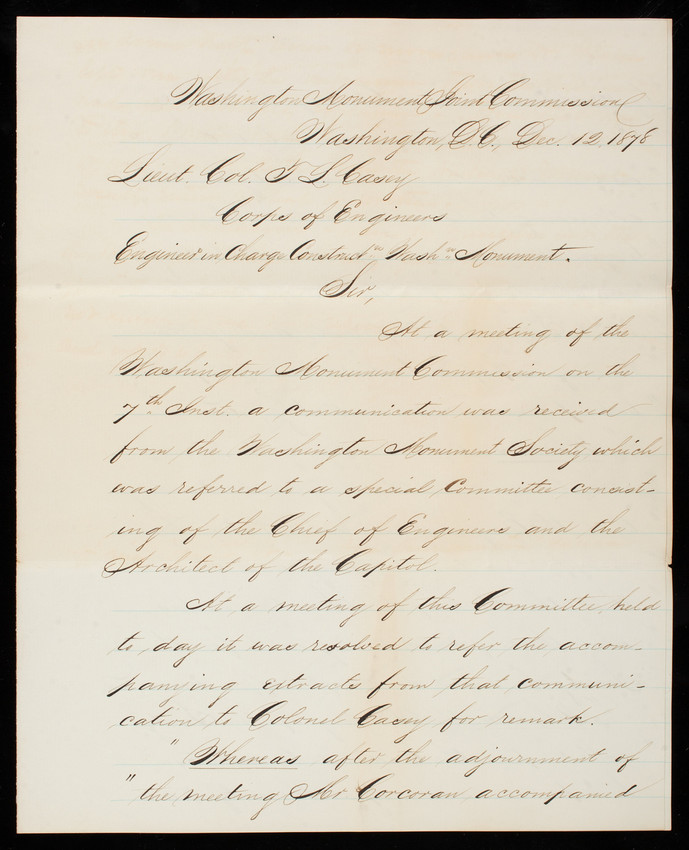 Washington Monument Joint Commission
Washington, D.C., Dec. 12, 1878
Lieut. Col. T L. Casey
Corps of Engineers
Engineer in Charge Construct:n Wash:n Monument.
Sir,
At a meeting of the
Washington Monument Commission on the
7th Inst. a communication was received
from the Washington Monument Society which
was referred to a special Committee consist-
ing of the Chief of Engineers and the
Architect of the Capitol.
At a meeting of this Committee, held
to day it was resolved to refer the accom-
panying extracts from that communi-
cation to Colonel Casey for remark.
" Whereas after the adjournment of
" the meeting Mr Corcoran accompanied